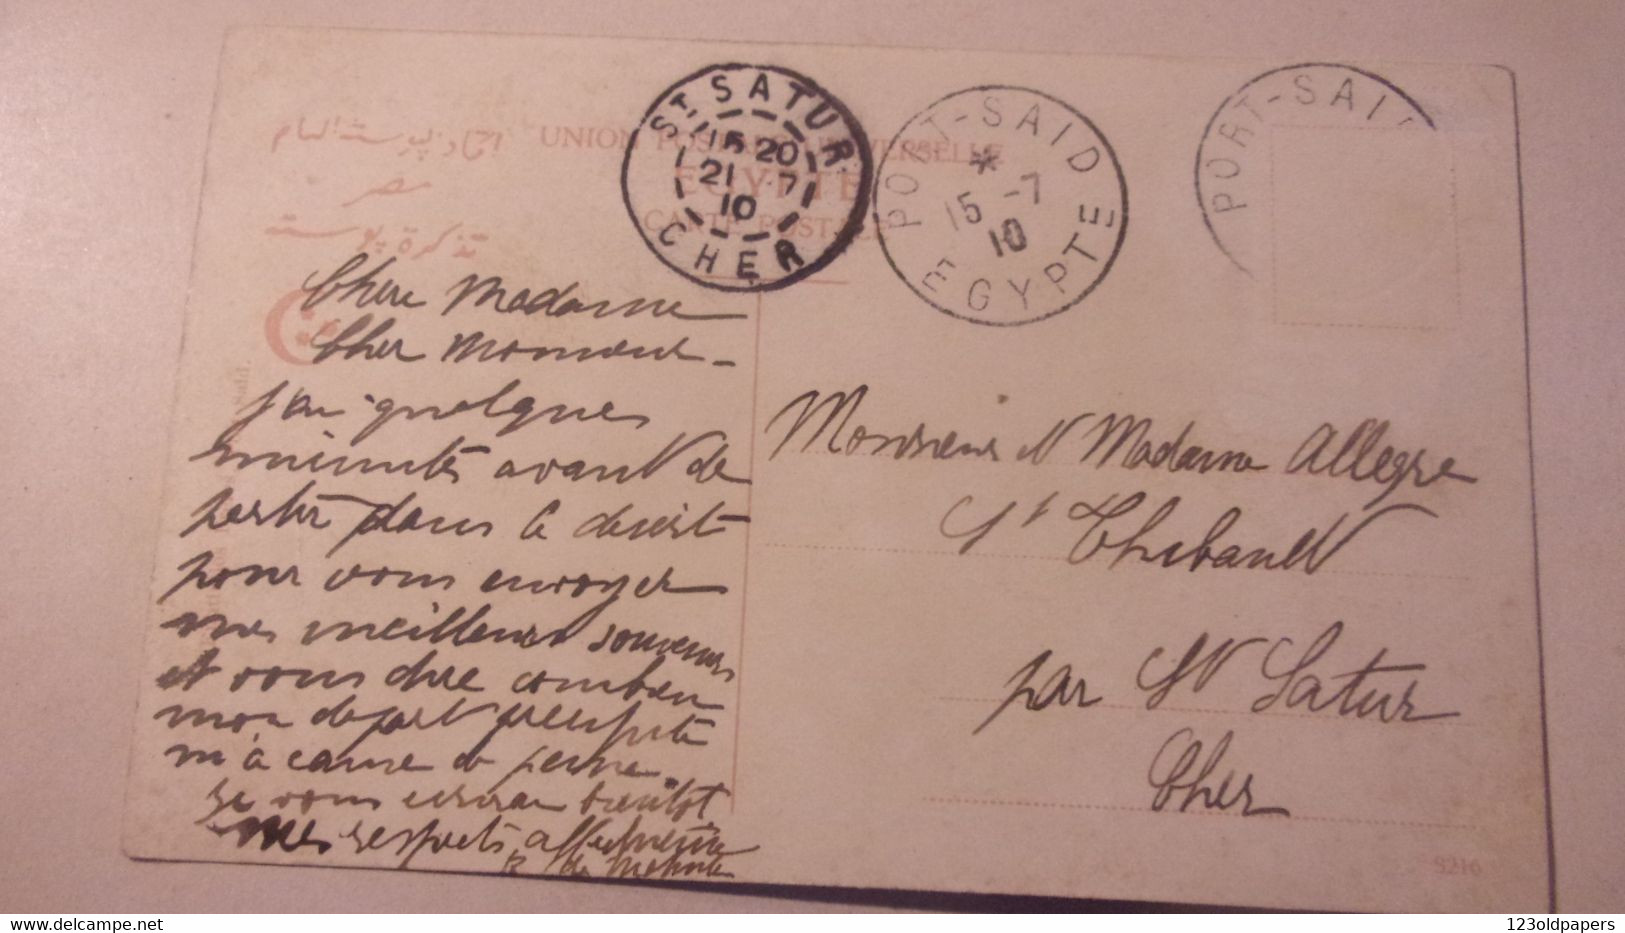 اتحاد پوستة العام
UNION POSTALE UNIVERSELLE
مصر
EGYPTE
تذكرة پوستة
CARTE POSTALE
ST SATUR
15 20
21 7
10
CHER
PORT-SAID
15 -7
10
EGYPTE
PORT-SAI
Chere Madame
Cher Monsieur -
j'ai quelques
minutes avant de
partir dans le desert
pour vous envoyer
mes meilleurs souvenirs
et vous dire combien
mon depart precipité
m'a causé de peine.
je vous ecrirai bientôt
mes respects affectueux
R de
Monsieur et Madame Allegre
St Thibault
par St Satur
Cher
9216
123oldpapers